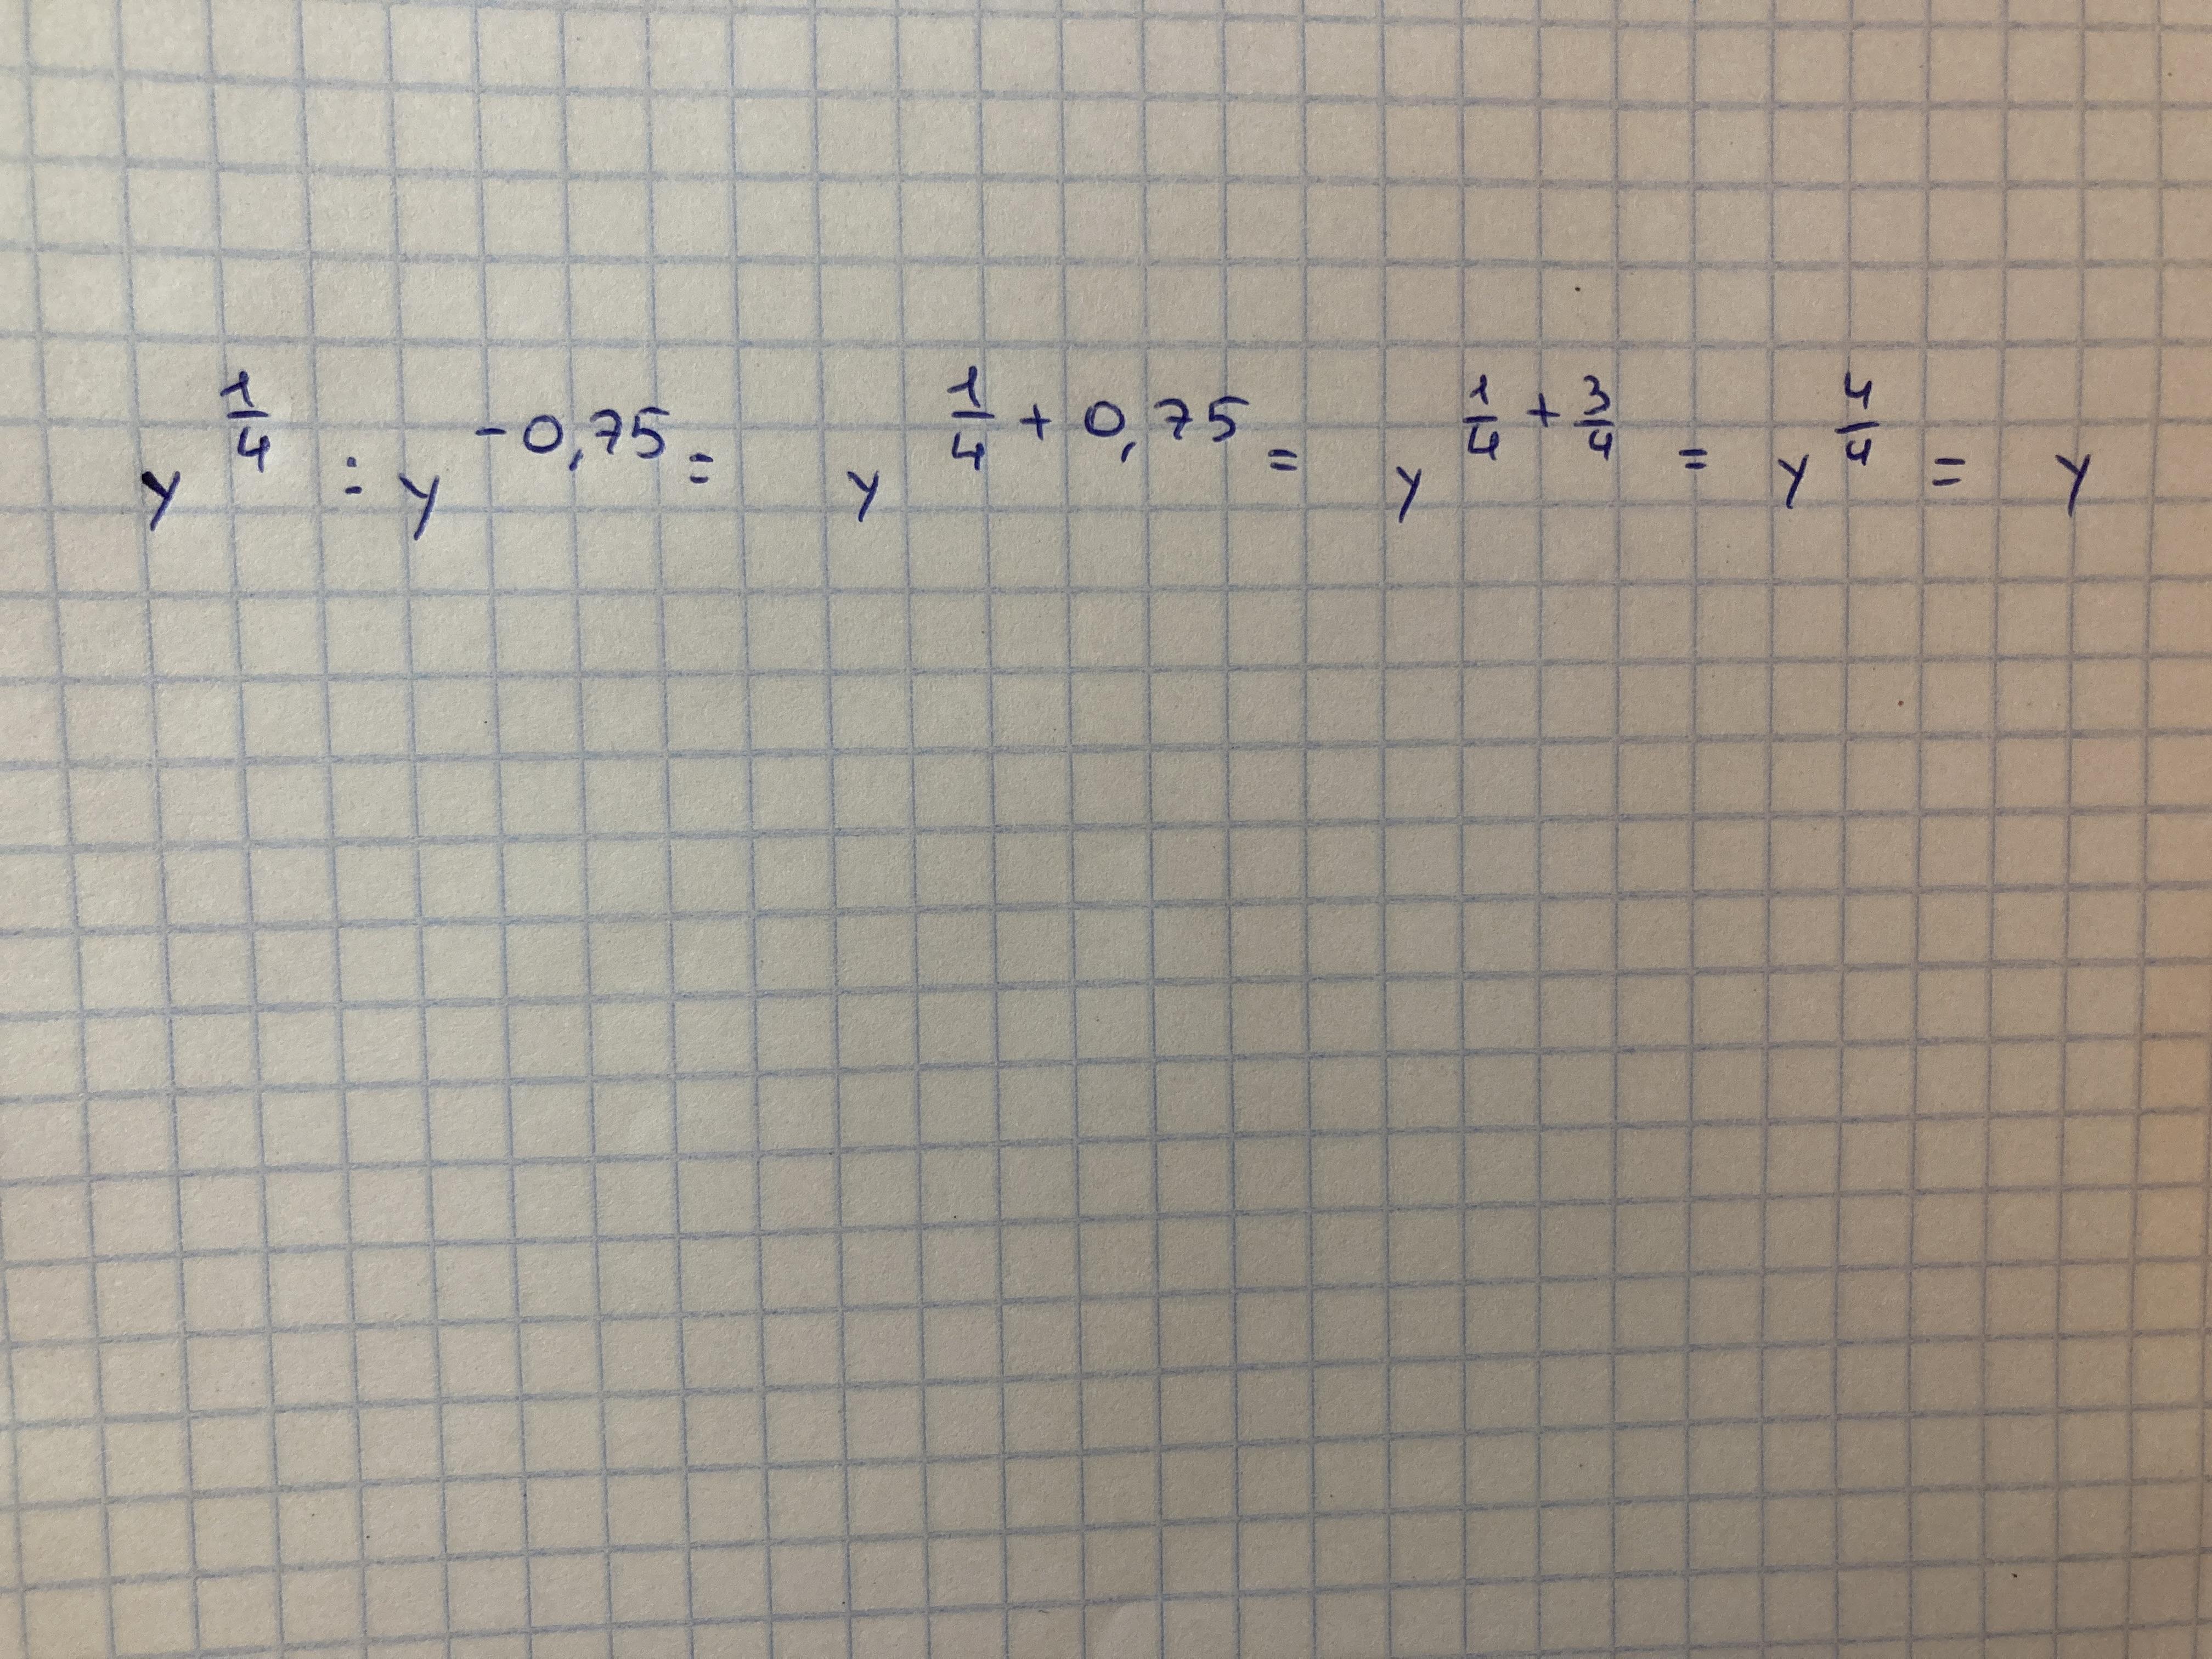 y^{\frac{1}{4}} : y^{-0,75} = y^{\frac{1}{4} + 0,75} = y^{\frac{1}{4} + \frac{3}{4}} = y^{\frac{4}{4}} = y